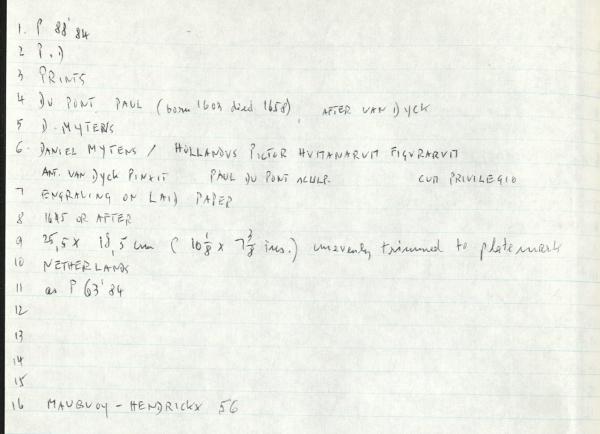 1. P 88'84
2 P.D
3 PRINTS
4 DU PONT PAUL (born 1603 died 1658), AFTER VAN DYCK
5 D. MYTENS
6. DANIEL MYTENS / HOLLANDVS PICTOR HVMANARVM FIGVRARVM
ANT. VAN DYCK PINXIT PAUL DU PONT SCULP. CUM PRIVILEGIO
7 ENGRAVING ON LAID PAPER
8 1645 OR AFTER
9 25,5 x 18,5 cm (10 1/8 x 7 3/8 ins.) unevenly trimmed to platemark
10 NETHERLANDS
11 as P 63'84
12
13
14
15
16 MAUQUOY - HENDRICKX 56